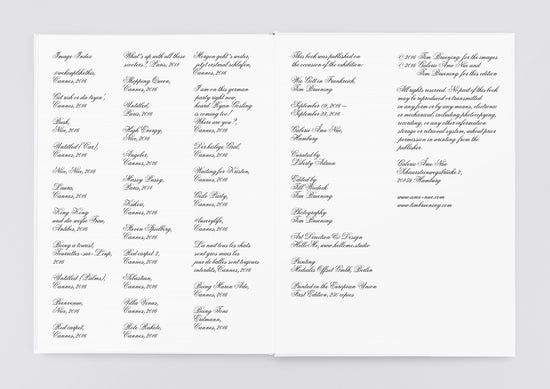 Image Index
Cannes, 2016
Get rich or die tryin',
Cannes, 2016
Bush,
Nice, 2016
Untitled (Car),
Cannes, 2016
Nice, Nice, 2016
Laura,
Cannes, 2016
King Kong
und die weiße Frau,
Antibes, 2016
Being a tourist,
Tourrettes-sur-Loup,
2016
Untitled (Palms),
Cannes, 2016
Bienvenue,
Nice, 2016
Red carpet,
Cannes, 2016
What's up with all these
scooters?, Paris, 2014
Shopping Queen,
Cannes, 2016
Untitled,
Paris, 2014
High Energy,
Nice, 2016
Angelos,
Cannes, 2016
Massey Passy,
Paris, 2014
Kidsen,
Cannes, 2016
Steven Spielberg,
Cannes, 2016
Red carpet 2,
Cannes, 2016
Sébastian,
Cannes, 2016
Villa Venus,
Cannes, 2016
Rote Rakete,
Cannes, 2016
Morgen geht's weiter,
jetzt erstmal schlafen,
Cannes, 2016
I am on this german
party right now,
heard Ryan Gosling
is coming too!
Where are you?,
Cannes, 2016
Der heilige Gral,
Cannes, 2016
Waiting for Kristen,
Cannes, 2016
Girls Party,
Cannes, 2016
Cannes, 2016
La nuit tous les chats
sont gris mais les
jeux de balles sont toujours
interdits, Cannes, 2016
Being Maren Ade,
Cannes, 2016
Being Toni
Erdmann,
Cannes, 2016
This book was published on
the occasion of the exhibition:
Wie Gott in Frankreich,
Tim Bruening
September 09, 2016 –
September 29, 2016
Galerie Amo Nüe,
Hamburg
Curated by
Edited by
Till Wiedeck
Tim Bruening
Photography
Tim Bruening
Art Direction & Design
HelloMe, www.hellome.studio
Printing
Medialis Offset GmbH, Berlin
Printed in the European Union
First Edition, 250 copies
© 2016 Tim Bruening for the images
© 2016 Galerie Amo Nüe and
Tim Bruening for this edition
All rights reserved. No part of this book
may be reproduced or transmitted
in any form or by any means, electronic
or mechanical, including photocopying,
recording, or any other information
storage or retrieval system, without prior
permission in wrinting from the
publisher.
Galerie Amo Nüe
Schaarsteinwegsbrücke 2,
20459 Hamburg
www.amo-nue.com
www.timbruening.com